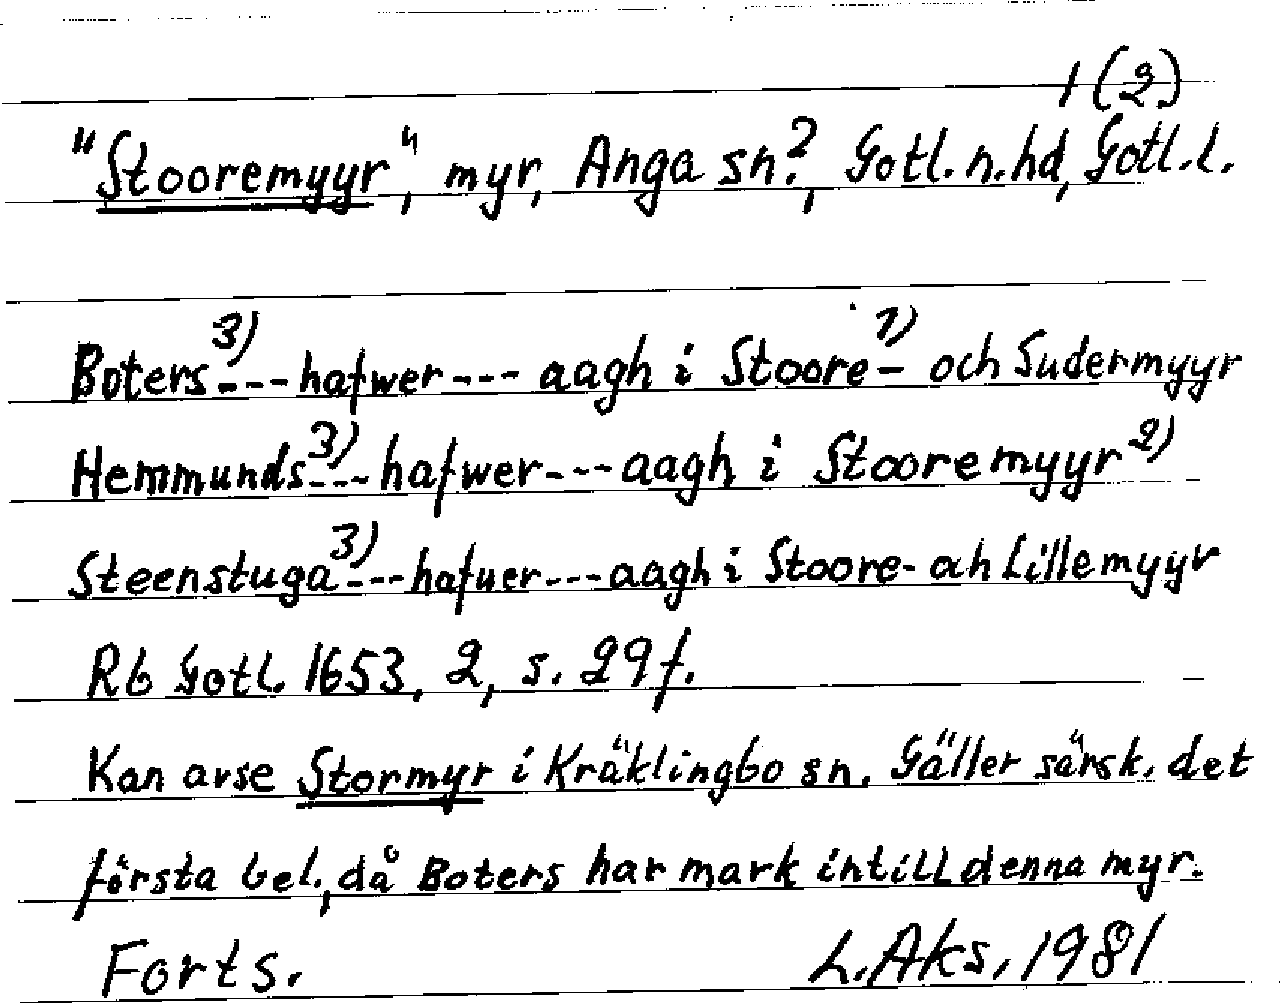 1 (2)
"Stooremyyr", myr, Anga sn?, Gotl. n. hd, Gotl. l.
Boters 3) --- hafwer --- aagh i Stoore- 1) och Sudermyyr
Hemmunds 3) --- hafwer --- aagh i Stooremyyr 2)
Steenstuga 3) --- hafuer --- aagh i Stoore- och Lillemyyr
Rb Gotl. 1653, 2, s. 29 f.
Kan avse Stormyr i Kräklingbo sn. Gäller särsk. det
första bel., då Boters har mark intill denna myr.
Forts. L. Aks. 1981